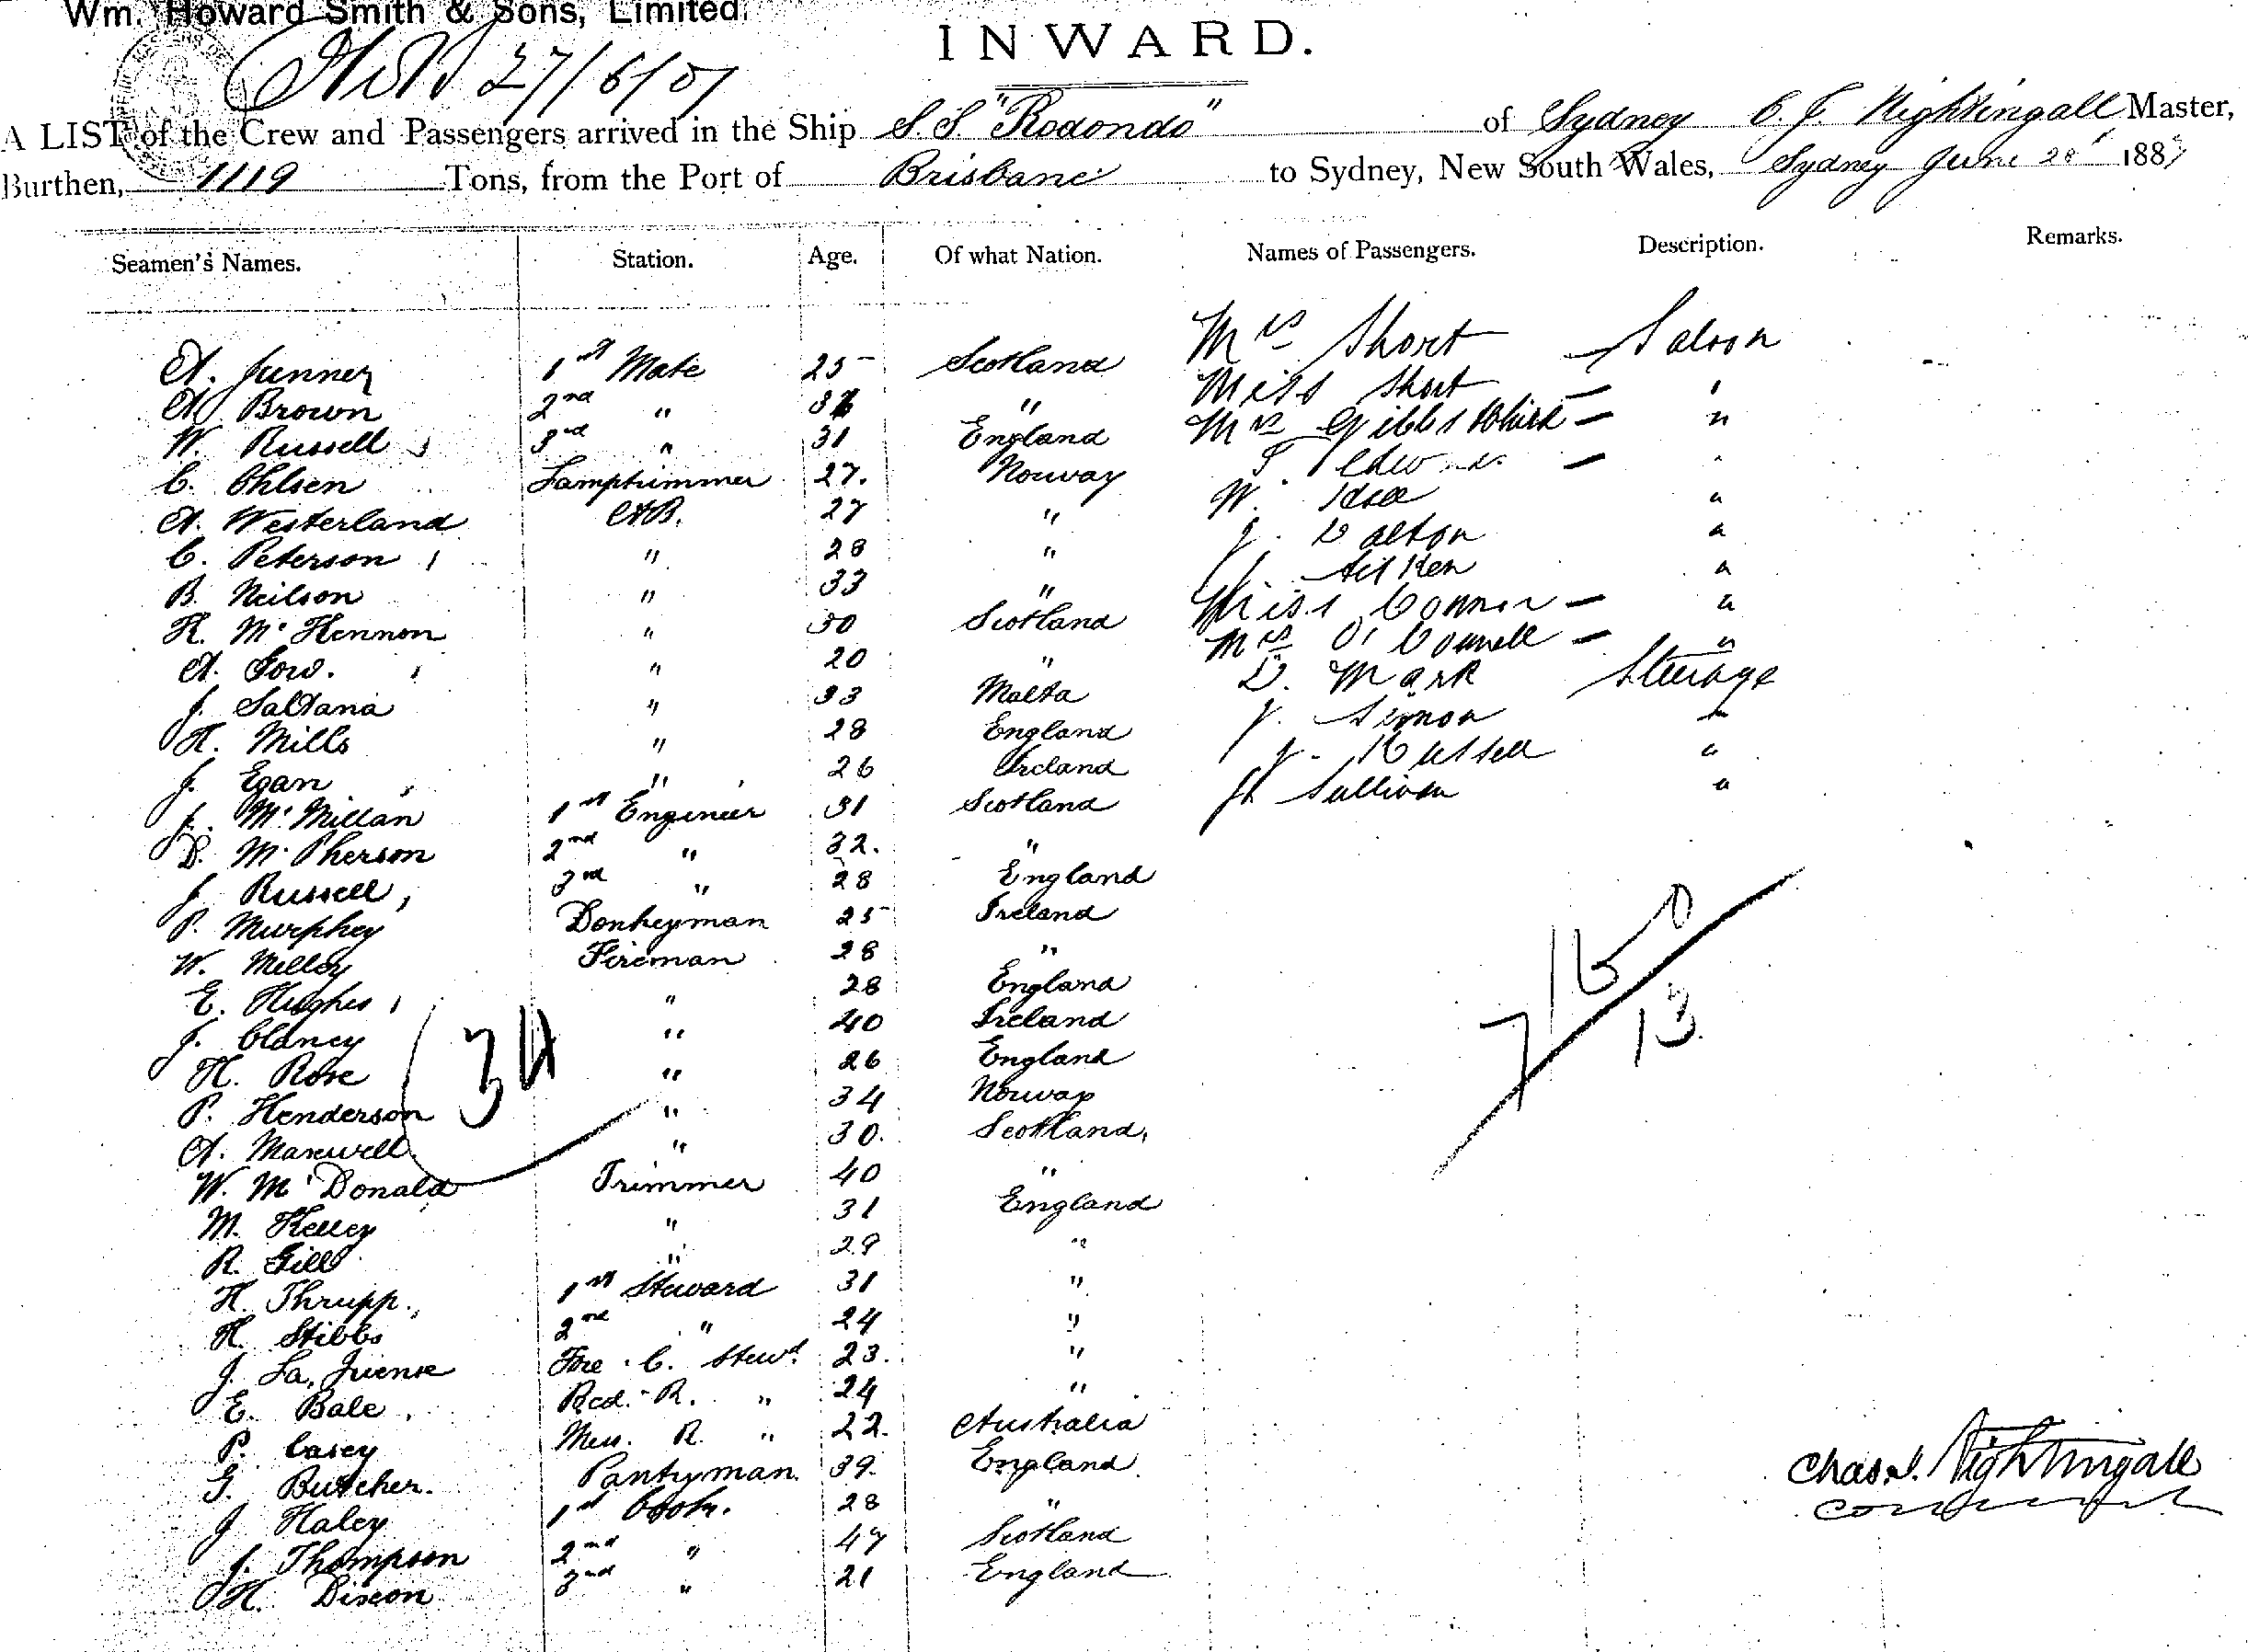 Wm. Howard Smith & Sons, Limited.
INWARD.
27/6/87
A LIST of the Crew and Passengers arrived in the Ship S.S. "Rodondo" of Sydney C. J. Nightingall Master,
Burthen, 1119 Tons, from the Port of Brisbane to Sydney, New South Wales, Sydney June 1887
Seamen's Names. Station. Age. Of what Nation. Names of Passengers. Description. Remarks.
A. Junner 1st Mate 25 Scotland Mrs Short Saloon
A. Brown 2nd " " Miss Short — "
W. Russell 3rd " 31 England Mrs Gibbs — "
C. Ohlsen Lamptrimmer 27. Norway — "
A. Westerland A.B. 27 " W. "
C. Peterson " 28 " J. Dalton "
B. Neilson " 33 " J. Aitken "
R. McKennon " 30 Scotland Miss Connor — "
A. Gow. " 20 " Mrs O'Connell — "
J. Saltana " 33 Malta D. Mark Steerage
H. Mills " 28 England J. Simon "
J. Egan " 26 Ireland J. Russell "
J. McMillan 1st Engineer 31 Scotland Sullivan "
D. McPherson 2nd " 32. "
J. Russell, 3rd " 28 England
P. Murphey Donkeyman 25 Ireland
W. Melloy Fireman 28 "
E. Hughes " 28 England
J. Clancy " 40 Ireland
H. Rose " 26 England
P. Henderson " 34 Norway
A. Maxwell " 30. Scotland,
W. McDonald Trimmer 40 "
M. Kelley " 31 England
R. Gill " 29 "
H. Thrupp. 1st Steward 31 "
H. Stibbs 2nd " 24 "
J. La. Fore. C. Stewd. 23. "
E. Bale Bed. R. " 24 "
P. Casey Mess. R. " 22. Australia
G. Butcher. Pantryman. 39. England
J Haley 1st Cook. 28 "
J. Thompson 2nd " 47 Scotland
H. Dixon 3rd " 21 England
34
7/6/0
13
Chas. J. Nightingall